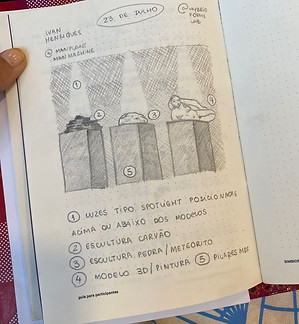 23 DE JULHO
IVAN
HENRIQUES
@
MAN MACHINE
@HYBRID
FORMS
LAB
1
2
3
4
5
1 LUZES TIPO SPOTLIGHT POSICIONADAS
ACIMA OU ABAIXO DOS MODELOS
2 ESCULTURA CARVÃO
3 ESCULTURA PEDRA/METEORITO
4 MODELO 3D/PINTURA 5 PILARES MDF
guia para participantes